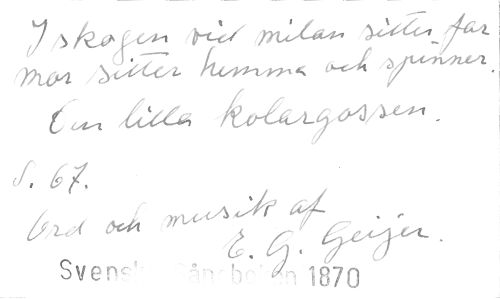 I skogen vid milan sitter far
mor sitter hemma och spinner.
Den lilla kolargossen.
S. 67.
Ord och musik af
E. G. Geijer.
Svensk Sångboken 1870